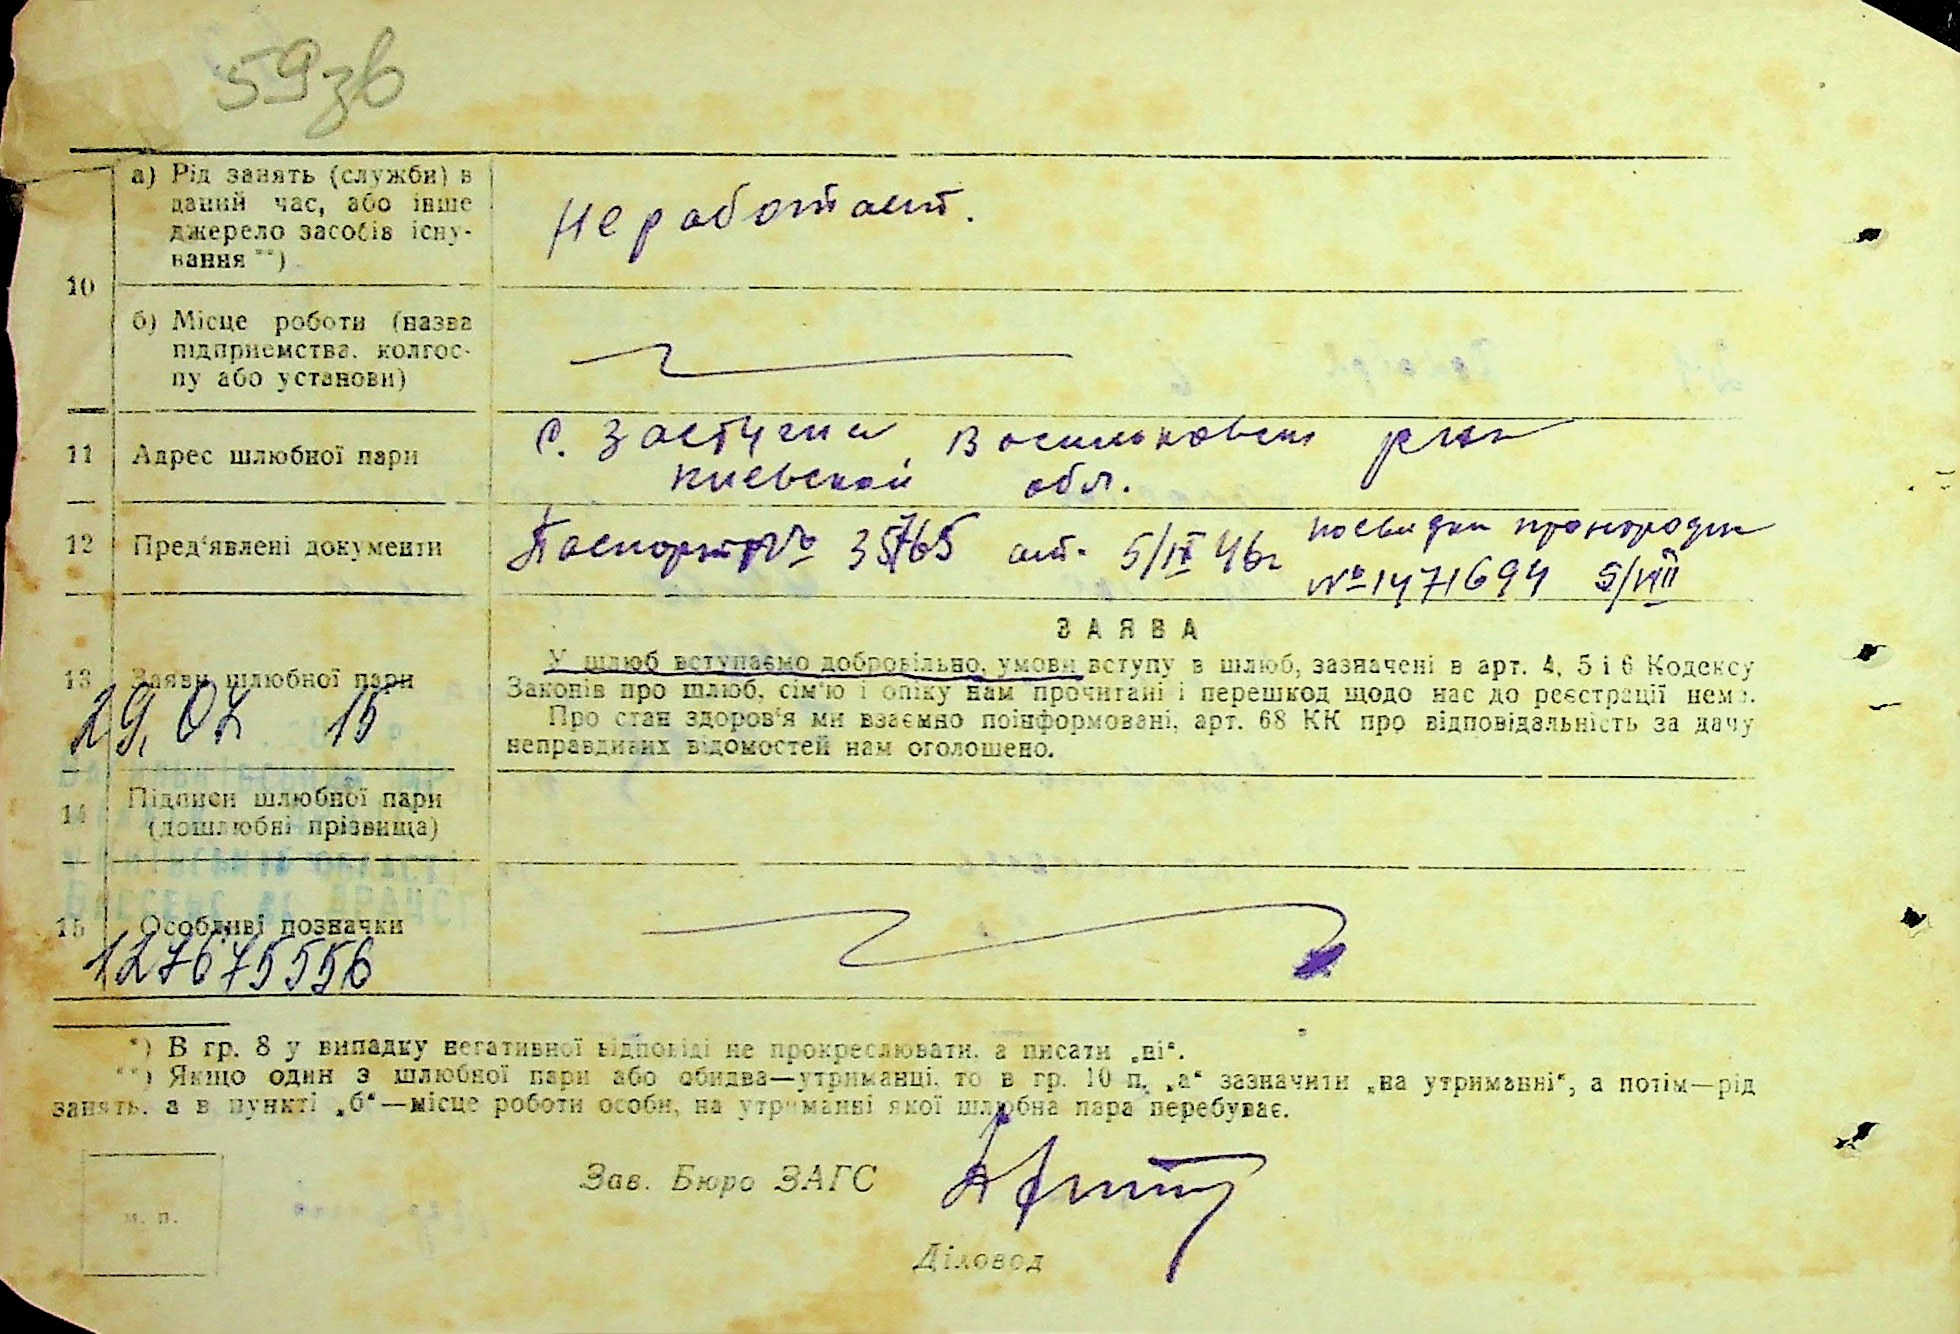 59зв
а) Рід занять (служби) в
даний час, або інше
джерело засобів існу-
вання **)
Не работает.
10
б) Місце роботи (назва
підприємства, колгос-
пу або установи)
11 Адрес шлюбної пари
с. Застугна Васильковск
Киевской обл.
12 Пред'явлені документи
Паспорт № 35765 от. 5/IX 46г
№ 1471694
ЗАЯВА
13 Заяви шлюбної пари
У шлюб вступаємо добровільно, умови вступу в шлюб, зазначені в арт. 4, 5 і 6 Кодексу
Законів про шлюб, сім'ю і опіку нам прочитані і перешкод щодо нас до реєстрації нема.
Про стан здоров'я ми взаємно поінформовані, арт. 68 КК про відповідальність за дачу
неправдивих відомостей нам оголошено.
29. 07 15
14 Підписи шлюбної пари
(дошлюбні прізвища)
15 Особливі позначки
127675556
*) В гр. 8 у випадку негативної відповіді не прокреслювати, а писати „ні“.
**) Якщо один з шлюбної пари або обидва—утриманці, то в гр. 10 п. „а“ зазначити „на утриманні“, а потім—рід
занять, а в пункті „б“—місце роботи особи, на утриманні якої шлюбна пара перебуває.
Зав. Бюро ЗАГС
м. п.
Діловод